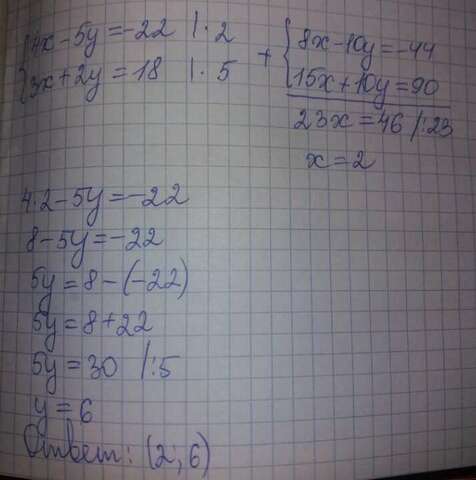 4x-5y=-22 |·2
3x+2y=18 |·5
+ 8x-10y=-44
15x+10y=90
23x=46 |:23
x=2
4·2-5y=-22
8-5y=-22
5y=8-(-22)
5y=8+22
5y=30 |:5
y=6
Ответ: (2; 6)